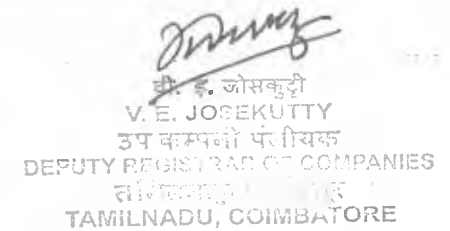 वी. इ. जोसकुट्टी
V. E. JOSEKUTTY
उप कम्पनी पंजीयक
DEPUTY REGISTRAR OF COMPANIES
TAMILNADU, COIMBATORE